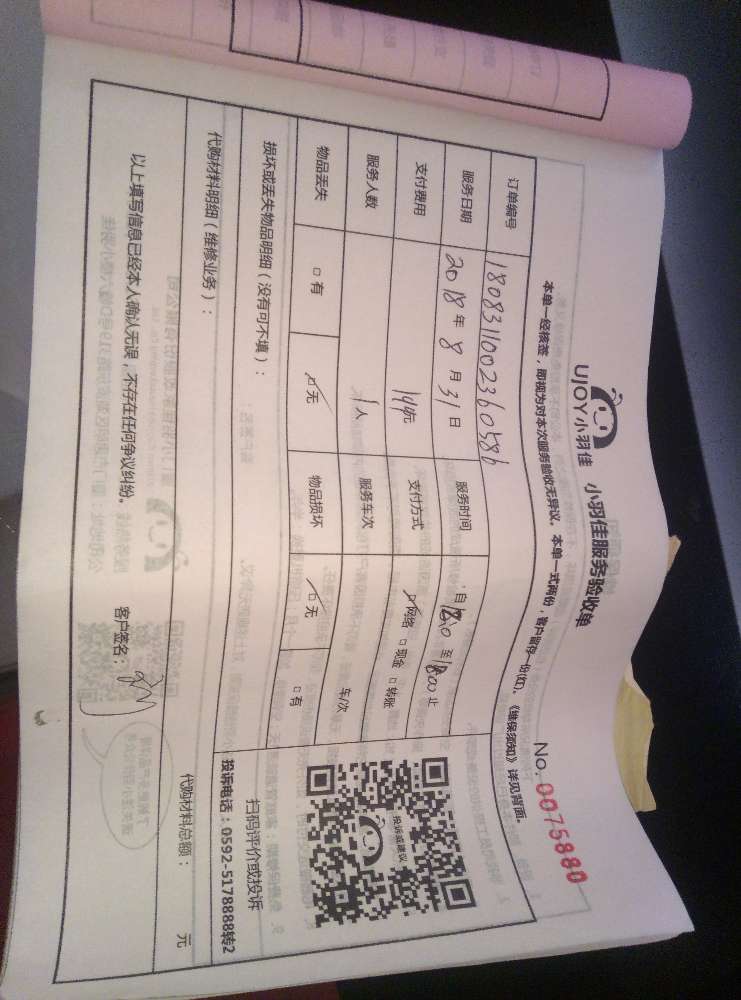 UJOY小羽佳 小羽佳服务验收单
No. 0075880
本单一经核签，即视为对本次服务验收无异议。本单一式两份，客户留存一份(红)。《维保须知》详见背面。
订单编号 180831100236058
服务日期 2018年8月31日 服务时间：自 至 止
支付费用 144元 支付方式 ☑网络 □现金 □转账
服务人数 1人 服务车次 车/次
物品丢失 □有 ☑无 物品损坏 ☑无 □有
投诉或建议
扫码评价或投诉
投诉电话：0592-5178888转2
损坏或丢失物品明细（没有可不填）：
代购材料明细（维修业务）：
代购材料总额： 元
以上填写信息已经本人确认无误，不存在任何争议纠纷。
客户签名：